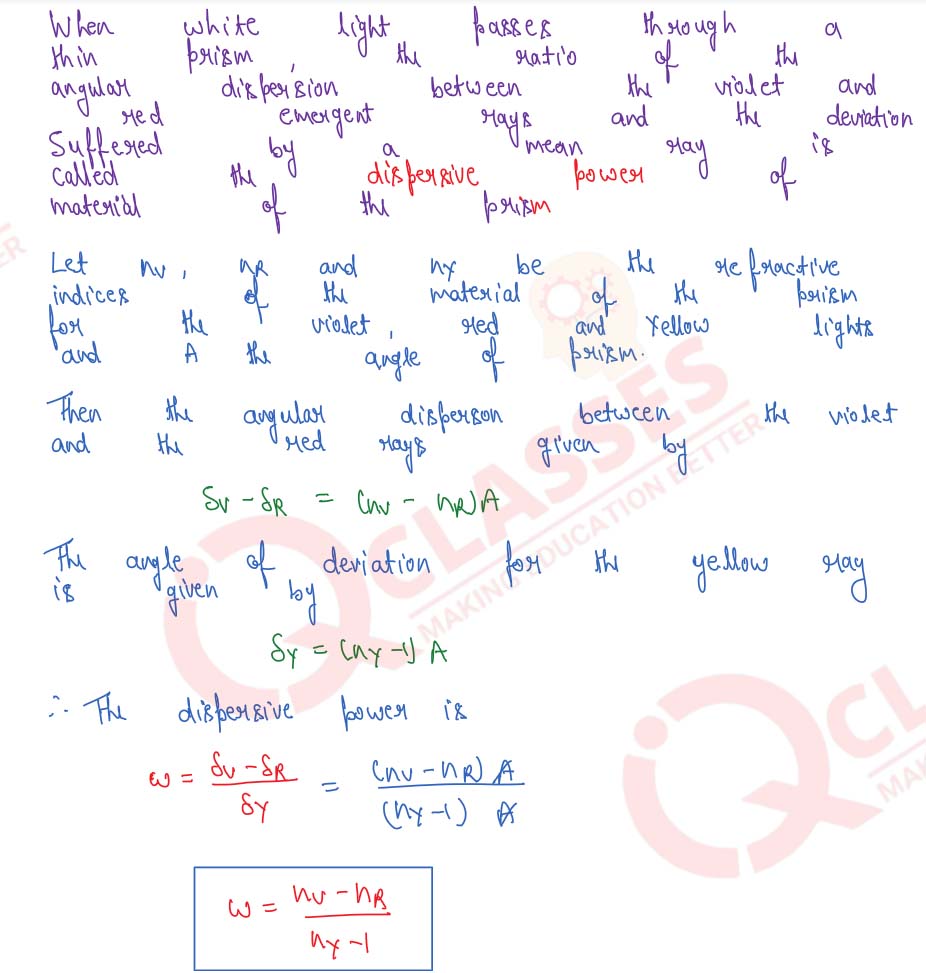 When white light passes through a
thin prism, the ratio of the
angular dispersion between the violet and
red emergent rays and the deviation
Suffered by a mean ray is
called the dispersive power of
material of the prism
Let nv, nR and ny be the refractive
indices of the material of the prism
for the violet, red and Yellow lights
and A the angle of prism.
Then the angular disperson between the violet
and the red rays given by
δv - δR = (nv - nR)A
The angle of deviation for the yellow ray
is given by
δy = (ny - 1) A
∴ The dispersive power is
ω = δv - δR / δy = (nv - nR) A / (ny - 1) A
ω = nv - nR / ny - 1
QCLASSES
MAKING EDUCATION BETTER
QCL
MAK
ER